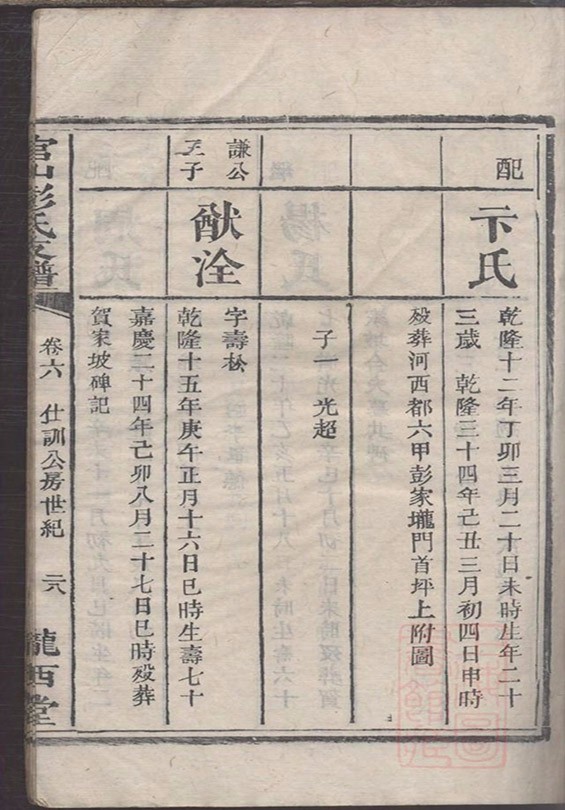 配
卞氏
乾隆十二年丁卯三月二十日未時生年二十
三歲 乾隆三十四年己丑三月初四日申時
殁葬河西都六甲彭家壠門首坪上附圖
子一光 光超
謙公
三子
猷洤
字壽松
乾隆十五年庚午正月十六日巳時生壽七十
嘉慶二十四年己卯八月二十七日巳時殁葬
賀家坡碑記
官山彭氏支譜
卷六 仕訓公房世紀 二八
隴西堂